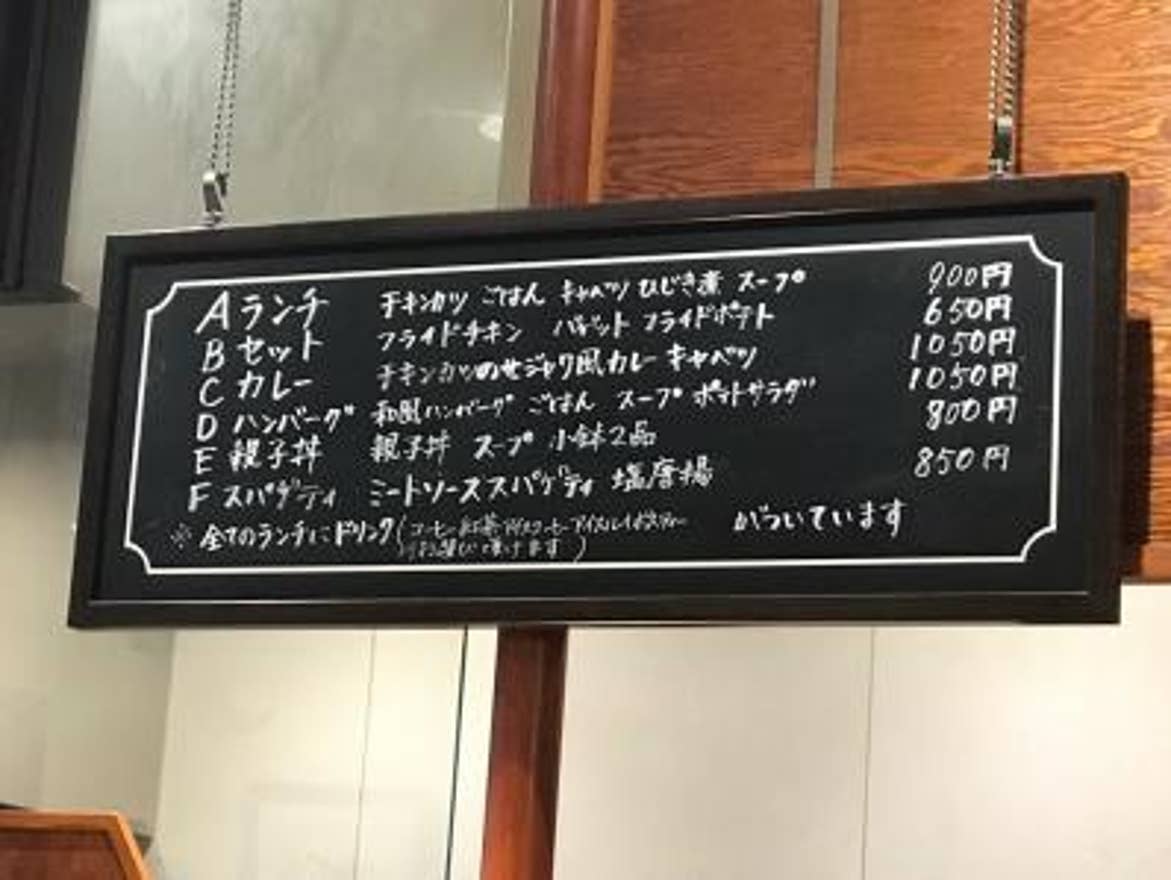 Aランチ チキンカツ ごはん キャベツ ひじき煮 スープ 900円
Bセット フライドチキン バゲット フライドポテト 650円
Cカレー チキンカツのせジャワ風カレー キャベツ 1050円
Dハンバーグ 和風ハンバーグ ごはん スープ ポテトサラダ 1050円
E親子丼 親子丼 スープ 小鉢2品 800円
Fスパゲティ ミートソーススパゲティ 塩唐揚 850円
※全てのランチにドリンク(コーヒー 紅茶 アイスコーヒー アイスティー がついています
よりお選び頂けます)